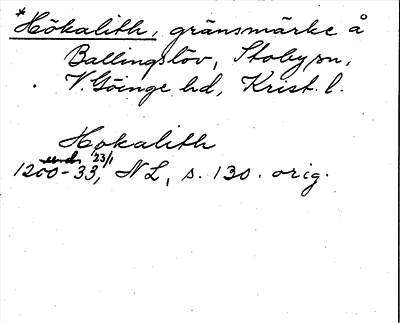 *Hökalith, gränsmärke å
Ballingslöv, Stoby sn,
V. Göinge hd, Krist. l.
Hokalith
23/1
1200-33, NL, s. 130. orig.